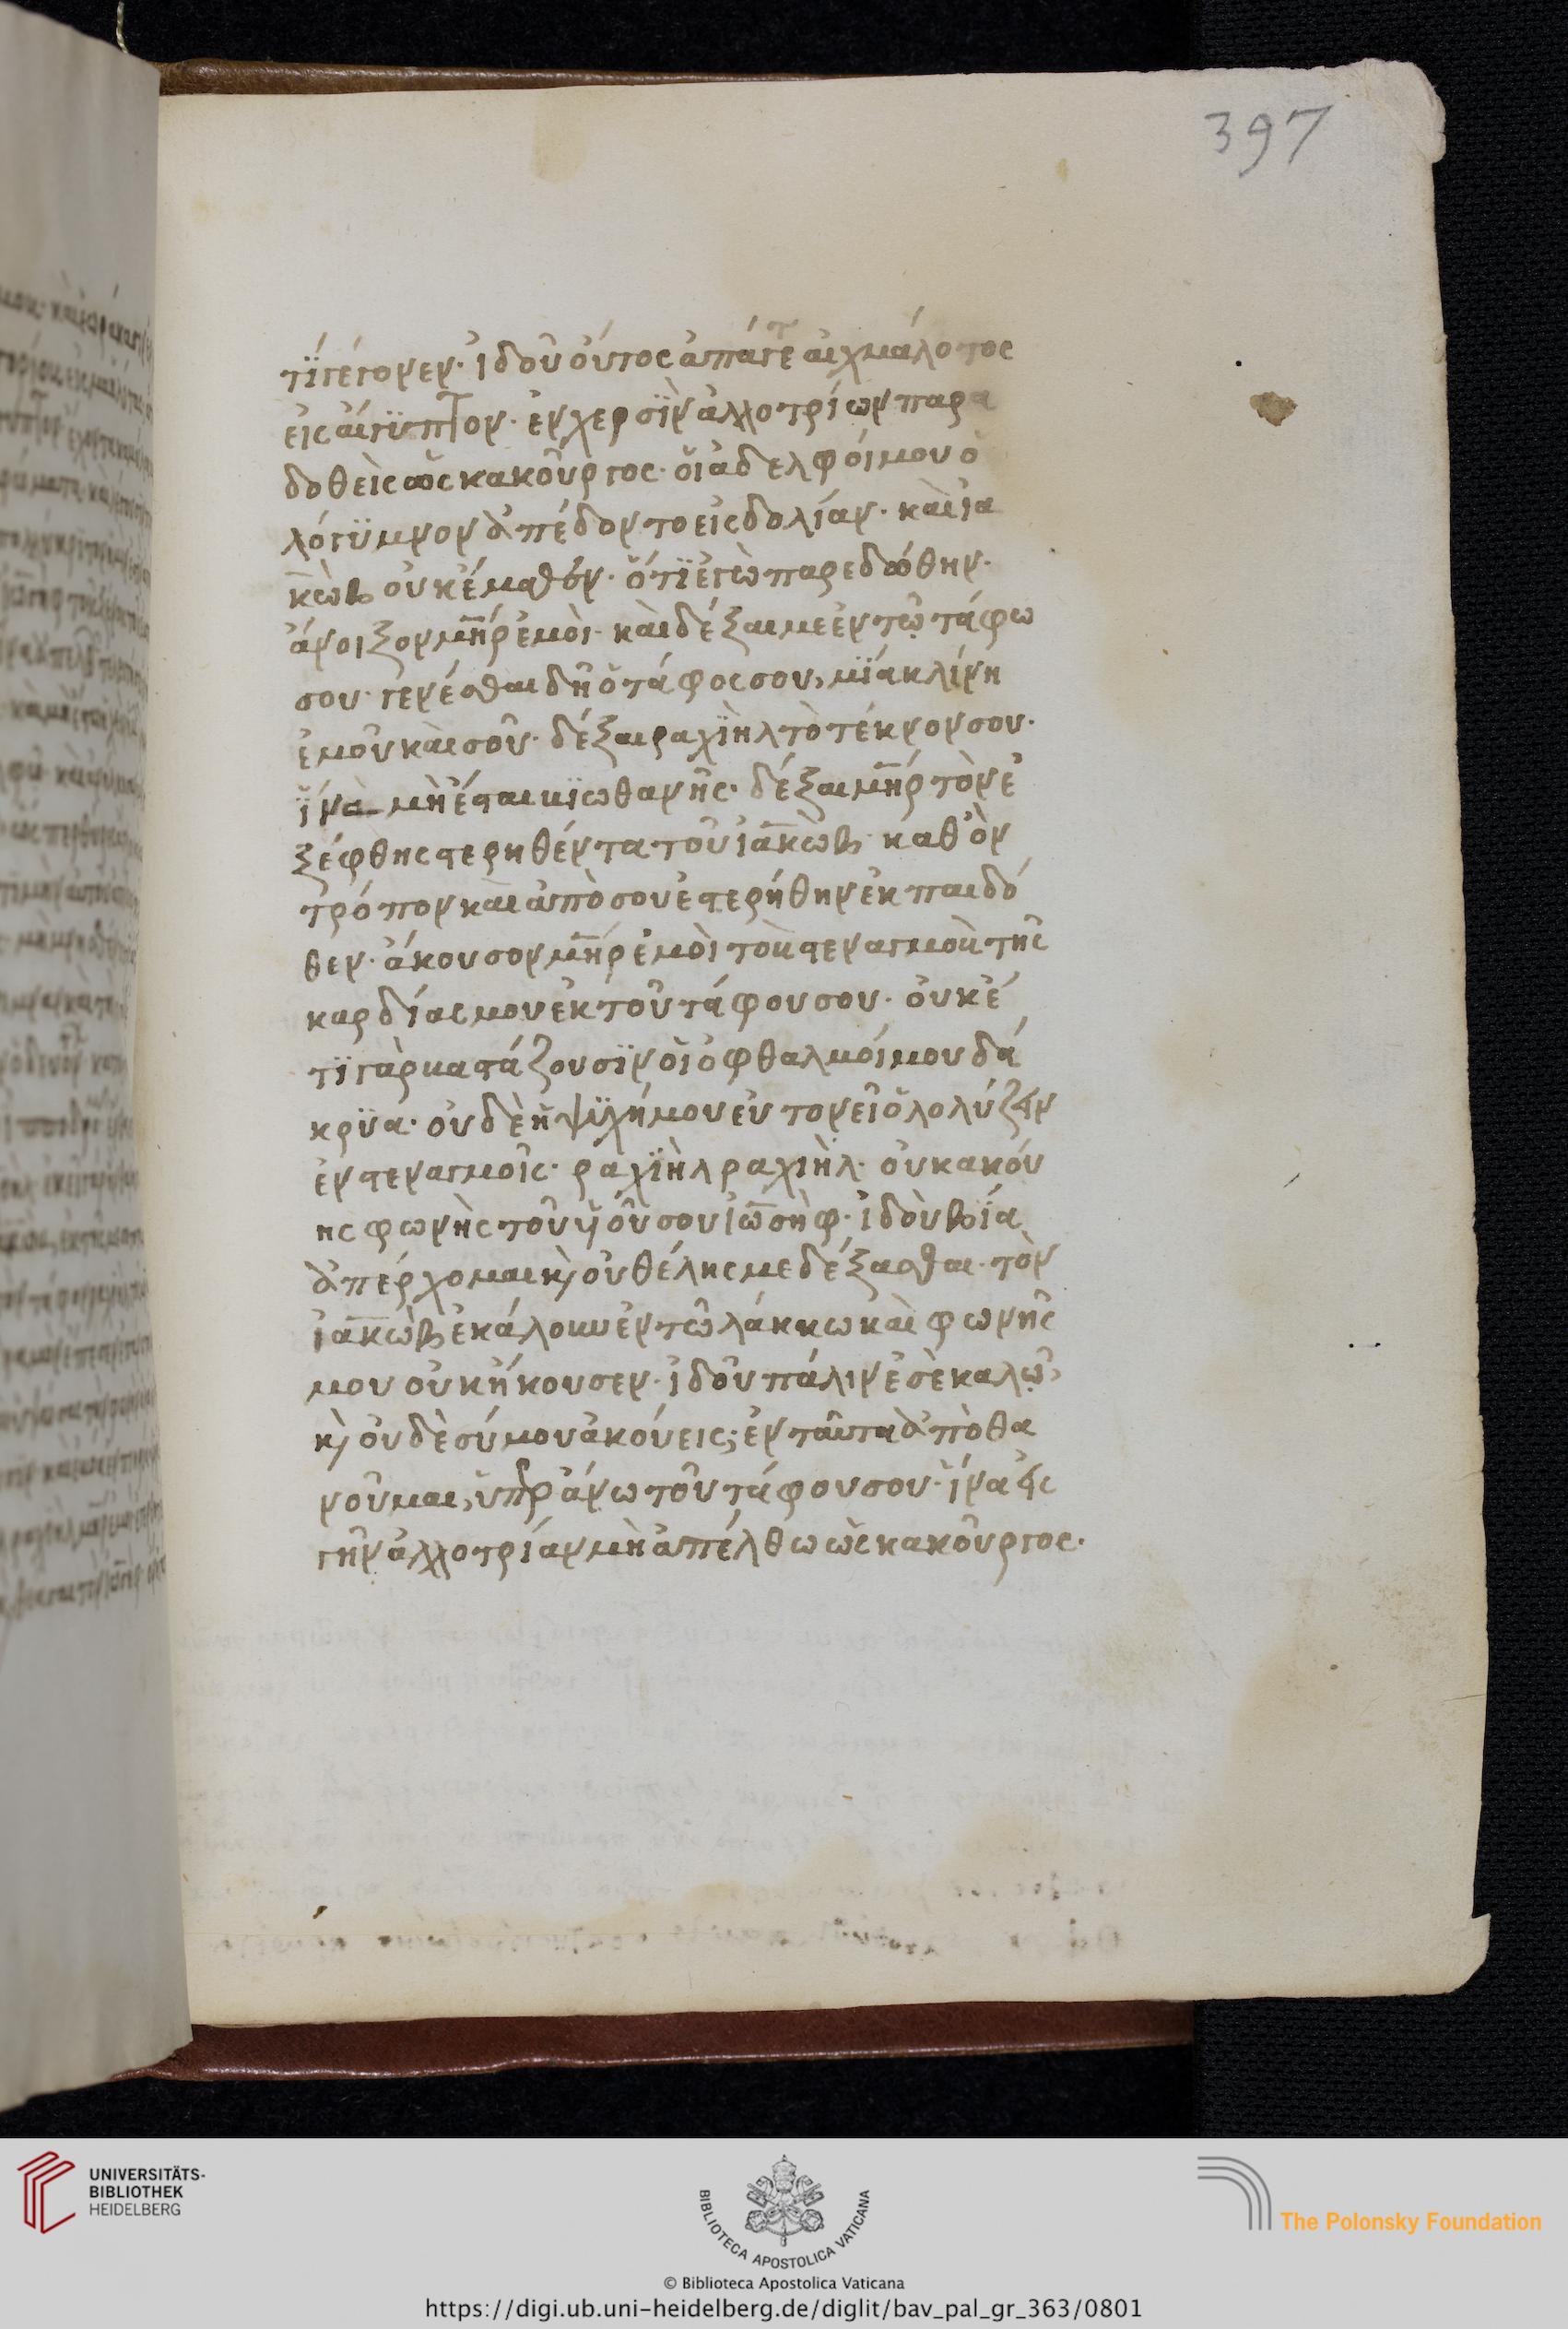 397
τί γέγονεν· ἰδοῦ οὕτος ἀπάγετ αἰχμάλοτος
εἰς ἀίγϋπτον· ἐν χερσῒν ἀλλοτρίων παρα
δοθεὶς ὡς κακοῦργος· ὅι ἀδελφοί μου ὁ
λόγϋμνον ἀπέδοντο εἰς δολίαν· καὶ ἰα
κὼβ οὐκ έμαθον· ὅτϊ ἐγὼ παρεδώθην·
ἄνοιξον μῆρ ἐμὸι· καὶ δέξαι με ἐν τῶ τάφω
σου· γενέσθαι δὴ ὁ τάφος σου, μΐα κλίνη
ἐμοῦ καὶ σοῦ· δέξαι ραχϊὴλ τὸ τέκνον σου·
ἵνα μὴ έσται κϊωθανῆς· δέξαι μῆρ τὸν ἐ
ξέφθης στερηθέντα τοῦ ἰακὼβ καθ ὃν
τρόπον καὶ ἀπὸ σου ἐστερήθην ἐκ παιδό
θεν· ἄκουσον μῆρ ἐμὸι τοὺ στεναγμοὺ τῆς
καρδίας μου ἐκ τοῦ τάφου σου· οὐκ έ
τϊ γὰρ καστάζουσϊν ὅι ὀφθαλμόι μου δά
κρϋα· οὐδὲ ἡ ψϋχή μου ἐυτονεῖ ὁλολύζειν
ἐν στεναγμοῖς· ραχϊὴλ ραχιὴλ· οὐκ ακόυ
ης φωνὴς τοῦ ϋἱοῦ σου ἰωσὴφ· ἰδοὺ βΐα
ἀπέρχομαι κ οὐ θέλης με δέξασθαι· τὸν
ἰακὼβ ἐκάλουν ἐν τῶ λάκκω καὶ φωνῆς
μου οὐκ ήκουσεν· ἰδοῦ πάλιν ἐσὲ καλῶ,
κ οὐδὲ σύ μου ἀκούεις; ἐνταῦτα ἀπὸθα
νοῦμαι, ὑπὲρ ἄνω τοῦ τάφου σου· ἵνα εἰς
γῆν ἀλλοτρίαν μὴ ἀπέλθω ὡς κακοῦργος·
UNIVERSITÄTS-
BIBLIOTHEK
HEIDELBERG
BIBLIOTECA APOSTOLICA VATICANA
The Polonsky Foundation
© Biblioteca Apostolica Vaticana
https://digi.ub.uni-heidelberg.de/diglit/bav_pal_gr_363/0801